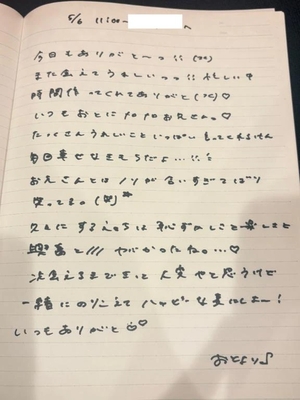 5/6 11:00~
へ
今日もありがと〜っ!!
また会えてうれしいっっ!! 忙しい中
時間作ってくれてありがと♡
いつもおとにメロメロお兄さん♡
たっくさんうれしいこといっぱい
毎日幸せなきもちだよ…!!
お兄さんとはノリが合いすぎてばり
笑ってる。(笑)
久々にするえっちは恥ずかしことと楽しさと
興奮と/// やばかったね。…♡
次会えるまできっと大変やと思うけど
一緒にのりこえてハッピーな夏にしよー!
いつもありがと♡
おとより♪